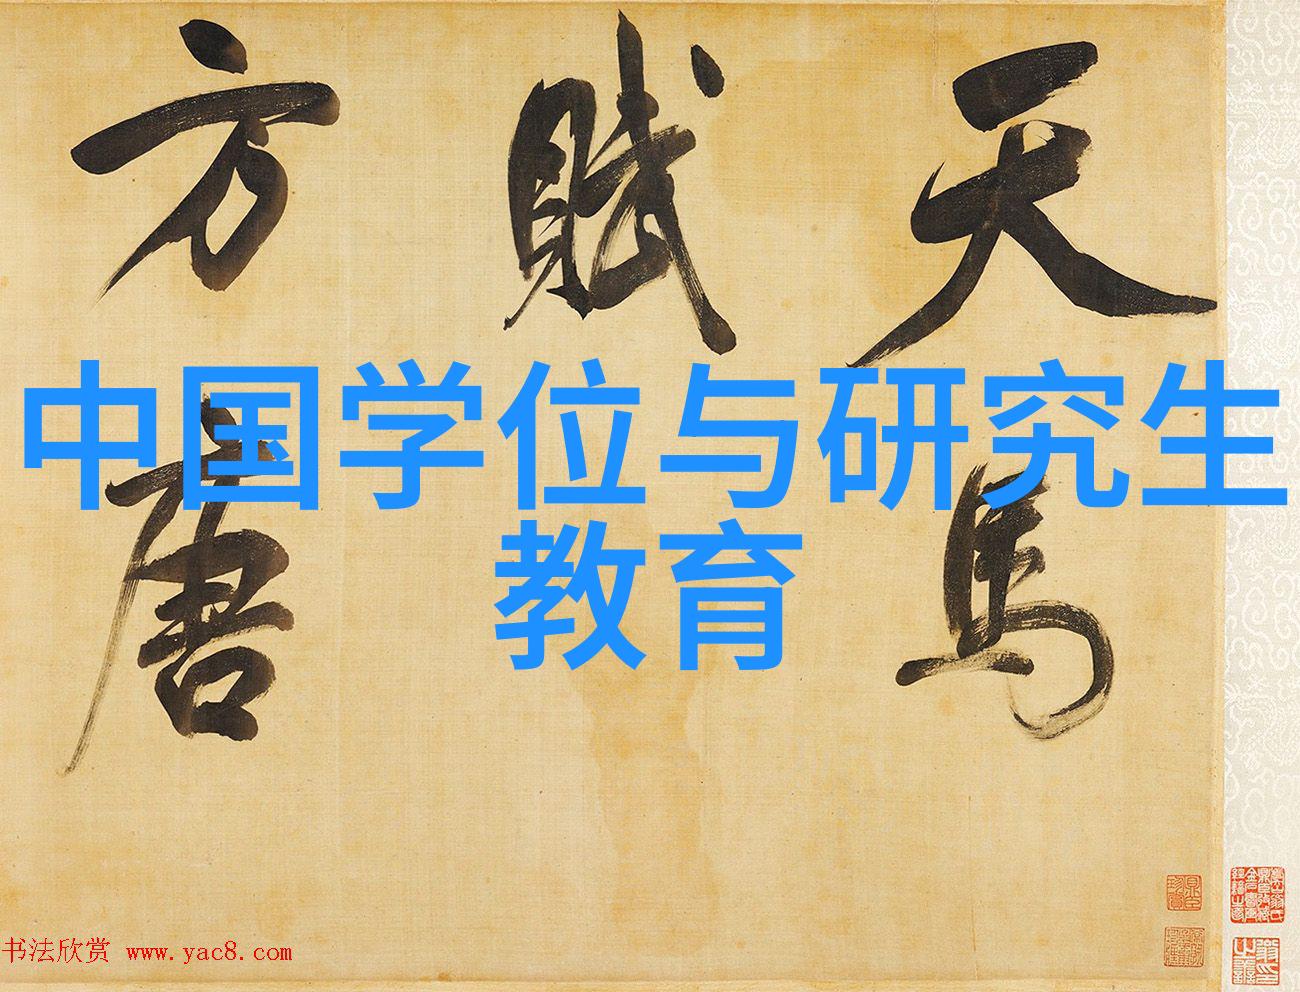 天馬
賦
方唐
中国学位与研究生
教育
书法欣赏 www.yac8.com